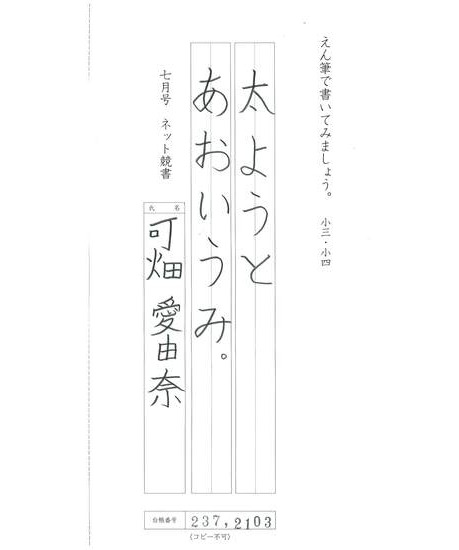 えん筆で書いてみましょう。 小三・小四
太ようと
あおいうみ。
七月号 ネット競書
氏名
可畑 愛由奈
合格番号 237,2103
(コピー不可)